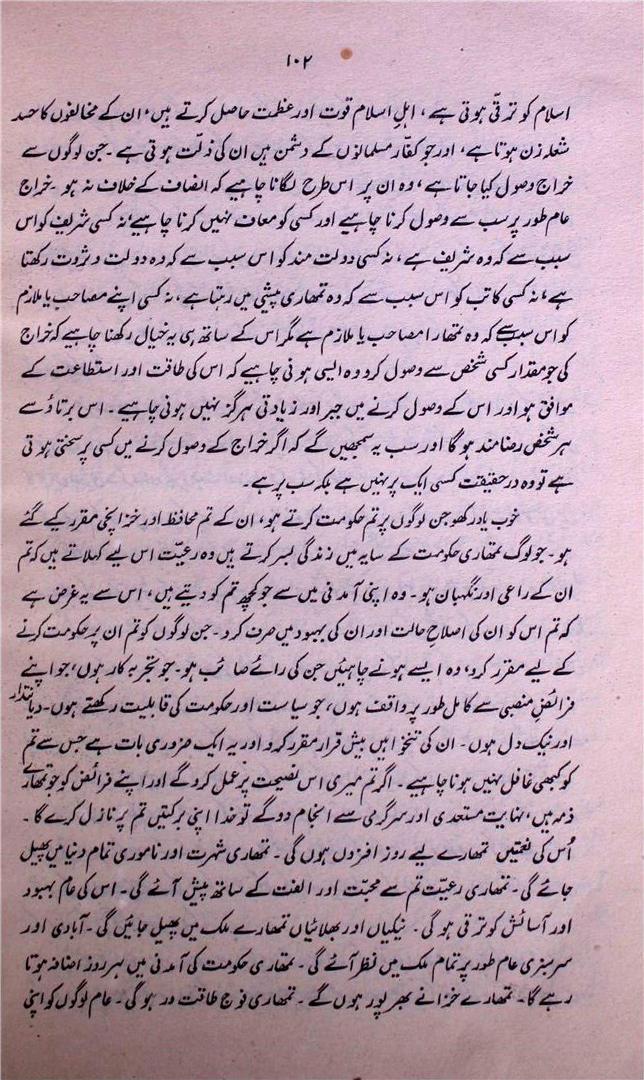 ۱۰۲
اسلام کو ترقی ہوتی ہے، اہلِ اسلام قوت اور عظمت حاصل کرتے ہیں، ان کے مخالفوں کا حسد
شعلہ زن ہوتا ہے، اور جو کفّار مسلمانوں کے دشمن ہیں ان کی ذلّت ہوتی ہے۔ جن لوگوں سے
خراج وصول کیا جاتا ہے، وہ ان پر اس طرح لگانا چاہیے کہ انصاف کے خلاف نہ ہو۔ خراج
عام طور پر سب سے وصول کرنا چاہیے اور کسی کو معاف نہیں کرنا چاہیے، نہ کسی شریف کو اس
سبب سے کہ وہ شریف ہے، نہ کسی دولت مند کو اس سبب سے کہ وہ دولت و ثروت رکھتا
ہے، نہ کسی کاتب کو اس سبب سے کہ وہ تمھاری پیشی میں رہتا ہے، نہ کسی اپنے مصاحب یا ملازم
کو اس سبب سے کہ وہ تمھارا مصاحب یا ملازم ہے مگر اس کے ساتھ ہی یہ خیال رکھنا چاہیے کہ خراج
کی جو مقدار کسی شخص سے وصول کرو وہ ایسی ہونی چاہیے کہ اس کی طاقت اور استطاعت کے
موافق ہو اور اس کے وصول کرنے میں جبر اور زیادتی ہرگز نہیں ہونی چاہیے۔ اس برتاؤ سے
ہر شخص رضامند ہوگا اور سب یہ سمجھیں گے کہ اگر خراج کے وصول کرنے میں کسی پر سختی ہوتی
ہے تو وہ درحقیقت کسی ایک پر نہیں ہے بلکہ سب پر ہے۔
خوب یاد رکھو جن لوگوں پر تم حکومت کرتے ہو، ان کے تم محافظ اور خزانچی مقرر کیے گئے
ہو۔ جو لوگ تمھاری حکومت کے سایہ میں زندگی بسر کرتے ہیں وہ رعیّت اس لیے کہلاتے ہیں کہ تم
ان کے راعی اور نگہبان ہو۔ وہ اپنی آمدنی میں سے جو کچھ تم کو دیتے ہیں، اس سے یہ غرض ہے
کہ تم اس کو ان کی اصلاحِ حالت اور ان کی بہبود میں صرف کرو۔ جن لوگوں کو تم ان پر حکومت کرنے
کے لیے مقرر کرو، وہ ایسے ہونے چاہئیں جن کی رائے صائب ہو۔ جو تجربہ کار ہوں، جو اپنے
فرائضِ منصبی سے کامل طور پر واقف ہوں، جو سیاست اور حکومت کی قابلیت رکھتے ہوں۔ دیانتدار
اور نیک دل ہوں۔ ان کی تنخواہیں بیش قرار مقرر کرو اور یہ ایک ضروری بات ہے جس سے تم
کو کبھی غافل نہیں ہونا چاہیے۔ اگر تم میری اس نصیحت پر عمل کرو گے اور اپنے فرائض کو جو تمھارے
ذمہ ہیں، نہایت مستعدی اور سرگرمی سے انجام دو گے تو خدا اپنی برکتیں تم پر نازل کرے گا۔
اُس کی نعمتیں تمھارے لیے روز افزوں ہوں گی۔ تمھاری شہرت اور ناموری تمام دنیا میں پھیل
جائے گی۔ تمھاری رعیّت تم سے محبّت اور الفت کے ساتھ پیش آئے گی۔ اس کی عام بہبود
اور آسائش کو ترقی ہوگی۔ نیکیاں اور بھلائیاں تمھارے ملک میں پھیل جائیں گی۔ آبادی اور
سرسبزی عام طور پر تمام ملک میں نظر آئے گی۔ تمھاری حکومت کی آمدنی میں ہر روز اضافہ ہوتا
رہے گا۔ تمھارے خزانے بھرپور ہوں گے۔ تمھاری فوج طاقت ور ہوگی۔ عام لوگوں کو اپنی